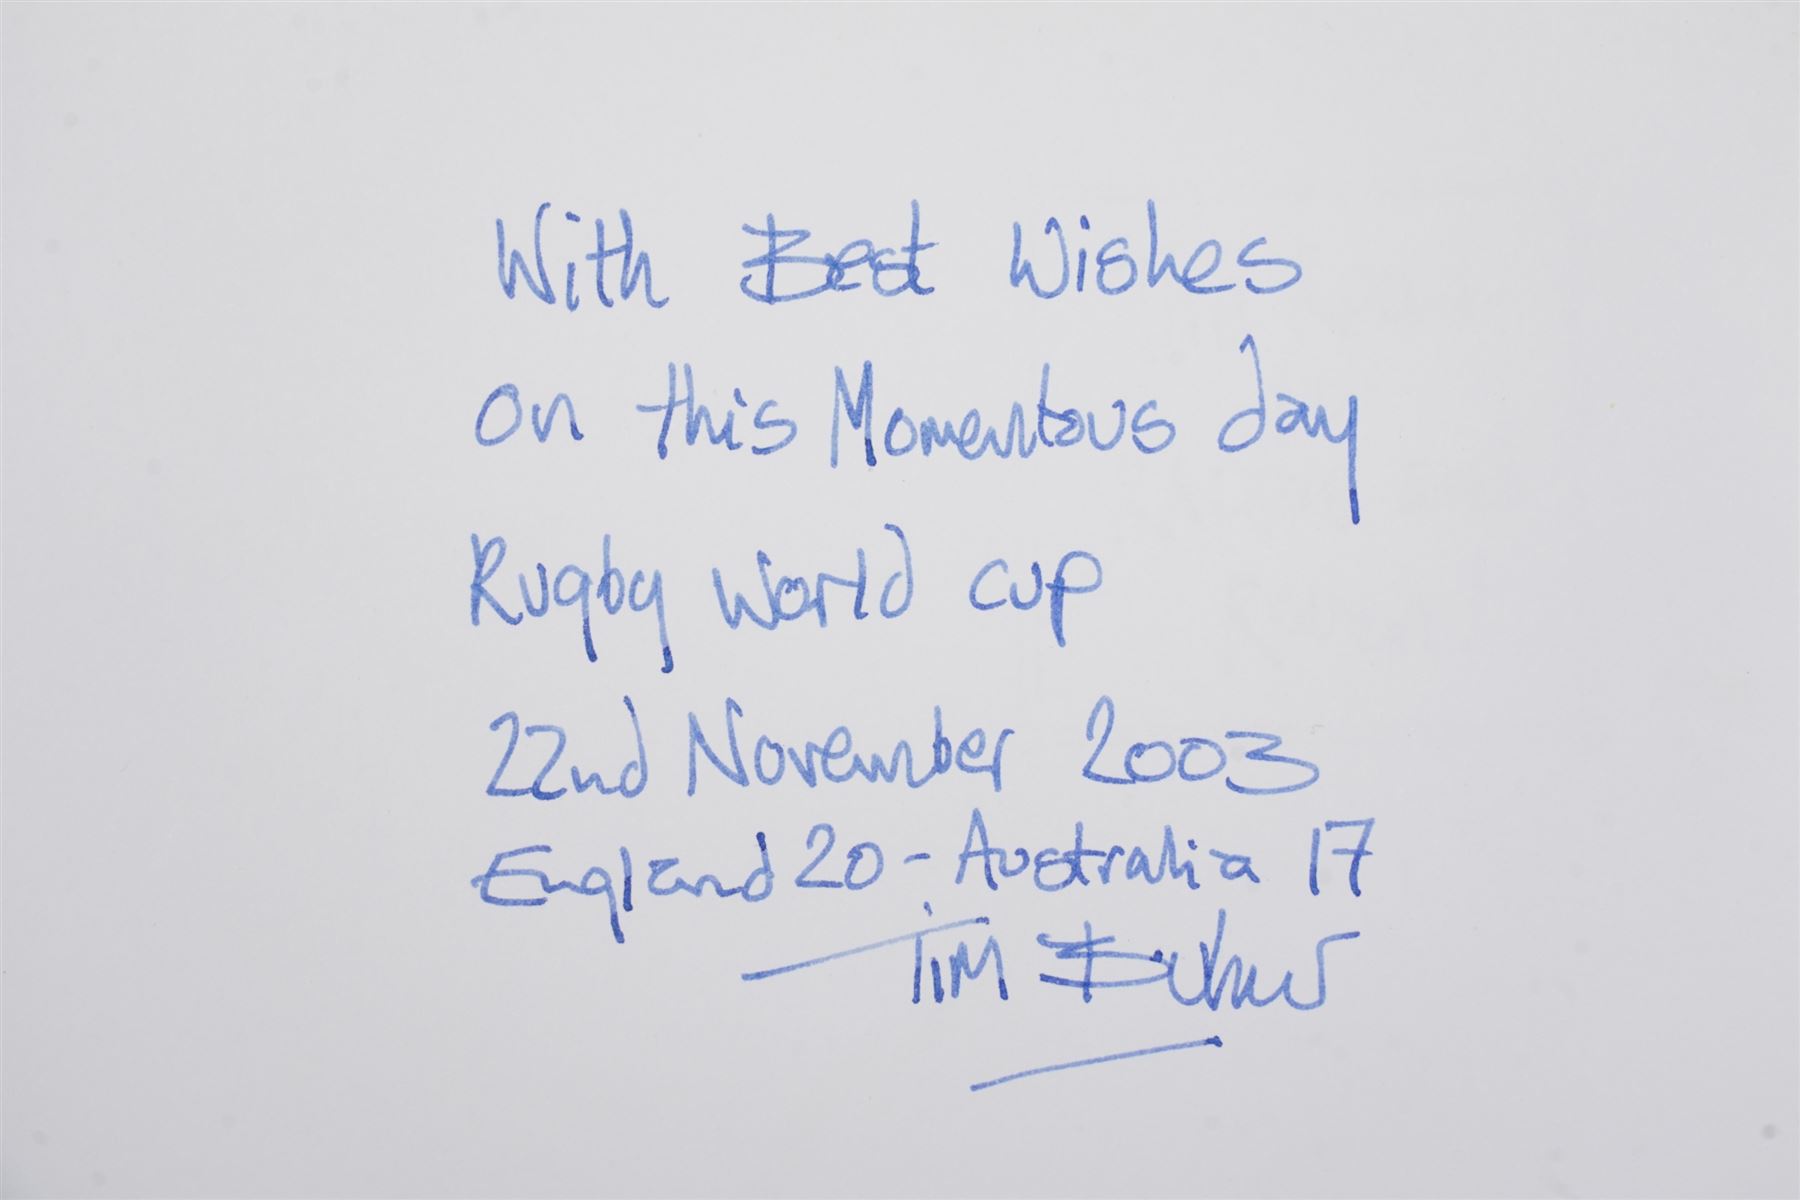 With Best Wishes
on this Momentous day
Rugby World cup
22nd November 2003
England 20 - Australia 17
Tim